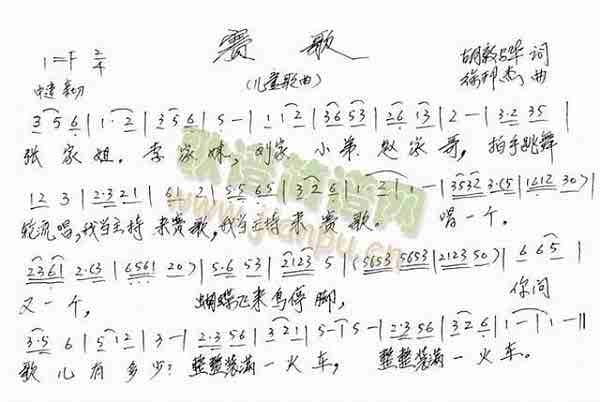 赛 歌
1=F 2/4
(儿童歌曲)
中速 亲切
胡敦骅 词
徐邦杰 曲
3 5 6 | 1·2 | 3 5 6 | 5 - | 1 1 2 | 3 6 5 3 | 2 6 1 3 | 2 - | 3·2 3 5 |
张 家 姐, 李 家 妹, 刘 家 小 弟 赵 家 哥, 拍手跳舞
1 2 3 | 2·3 2 1 | 6 1 2 | 5·5 6 5 | 3 2 6 | 1 - 2 | 1 - | 3 5 3 2 3·(5 | 1 6 1 2 3 0) |
轮流唱,我当主持 来赛歌,我当主持 来 赛 歌. 唱 一 个,
2 3 6 1 2·(3 | 6 5 6 1 2 0) | 5·6 5 3 | 2 1 2 3 5 | (5 6 5 3 5 6 5 3 | 2 1 2 3 5 0) | 6 6 5 |
又 一 个, 蝴蝶飞来鸟停脚, 你问
3·5 6 | 5 1 2 | 3 - | 2·3 5 6 | 3 2 1 | 5 - | 5 - | 2·3 5 6 | 3 2 6 | 1 - | 1 - ||
歌 儿 有 多 少? 整整装满 一 火 车, 整整装满 一 火 车。
歌谱简谱网
www.jianpu.cn